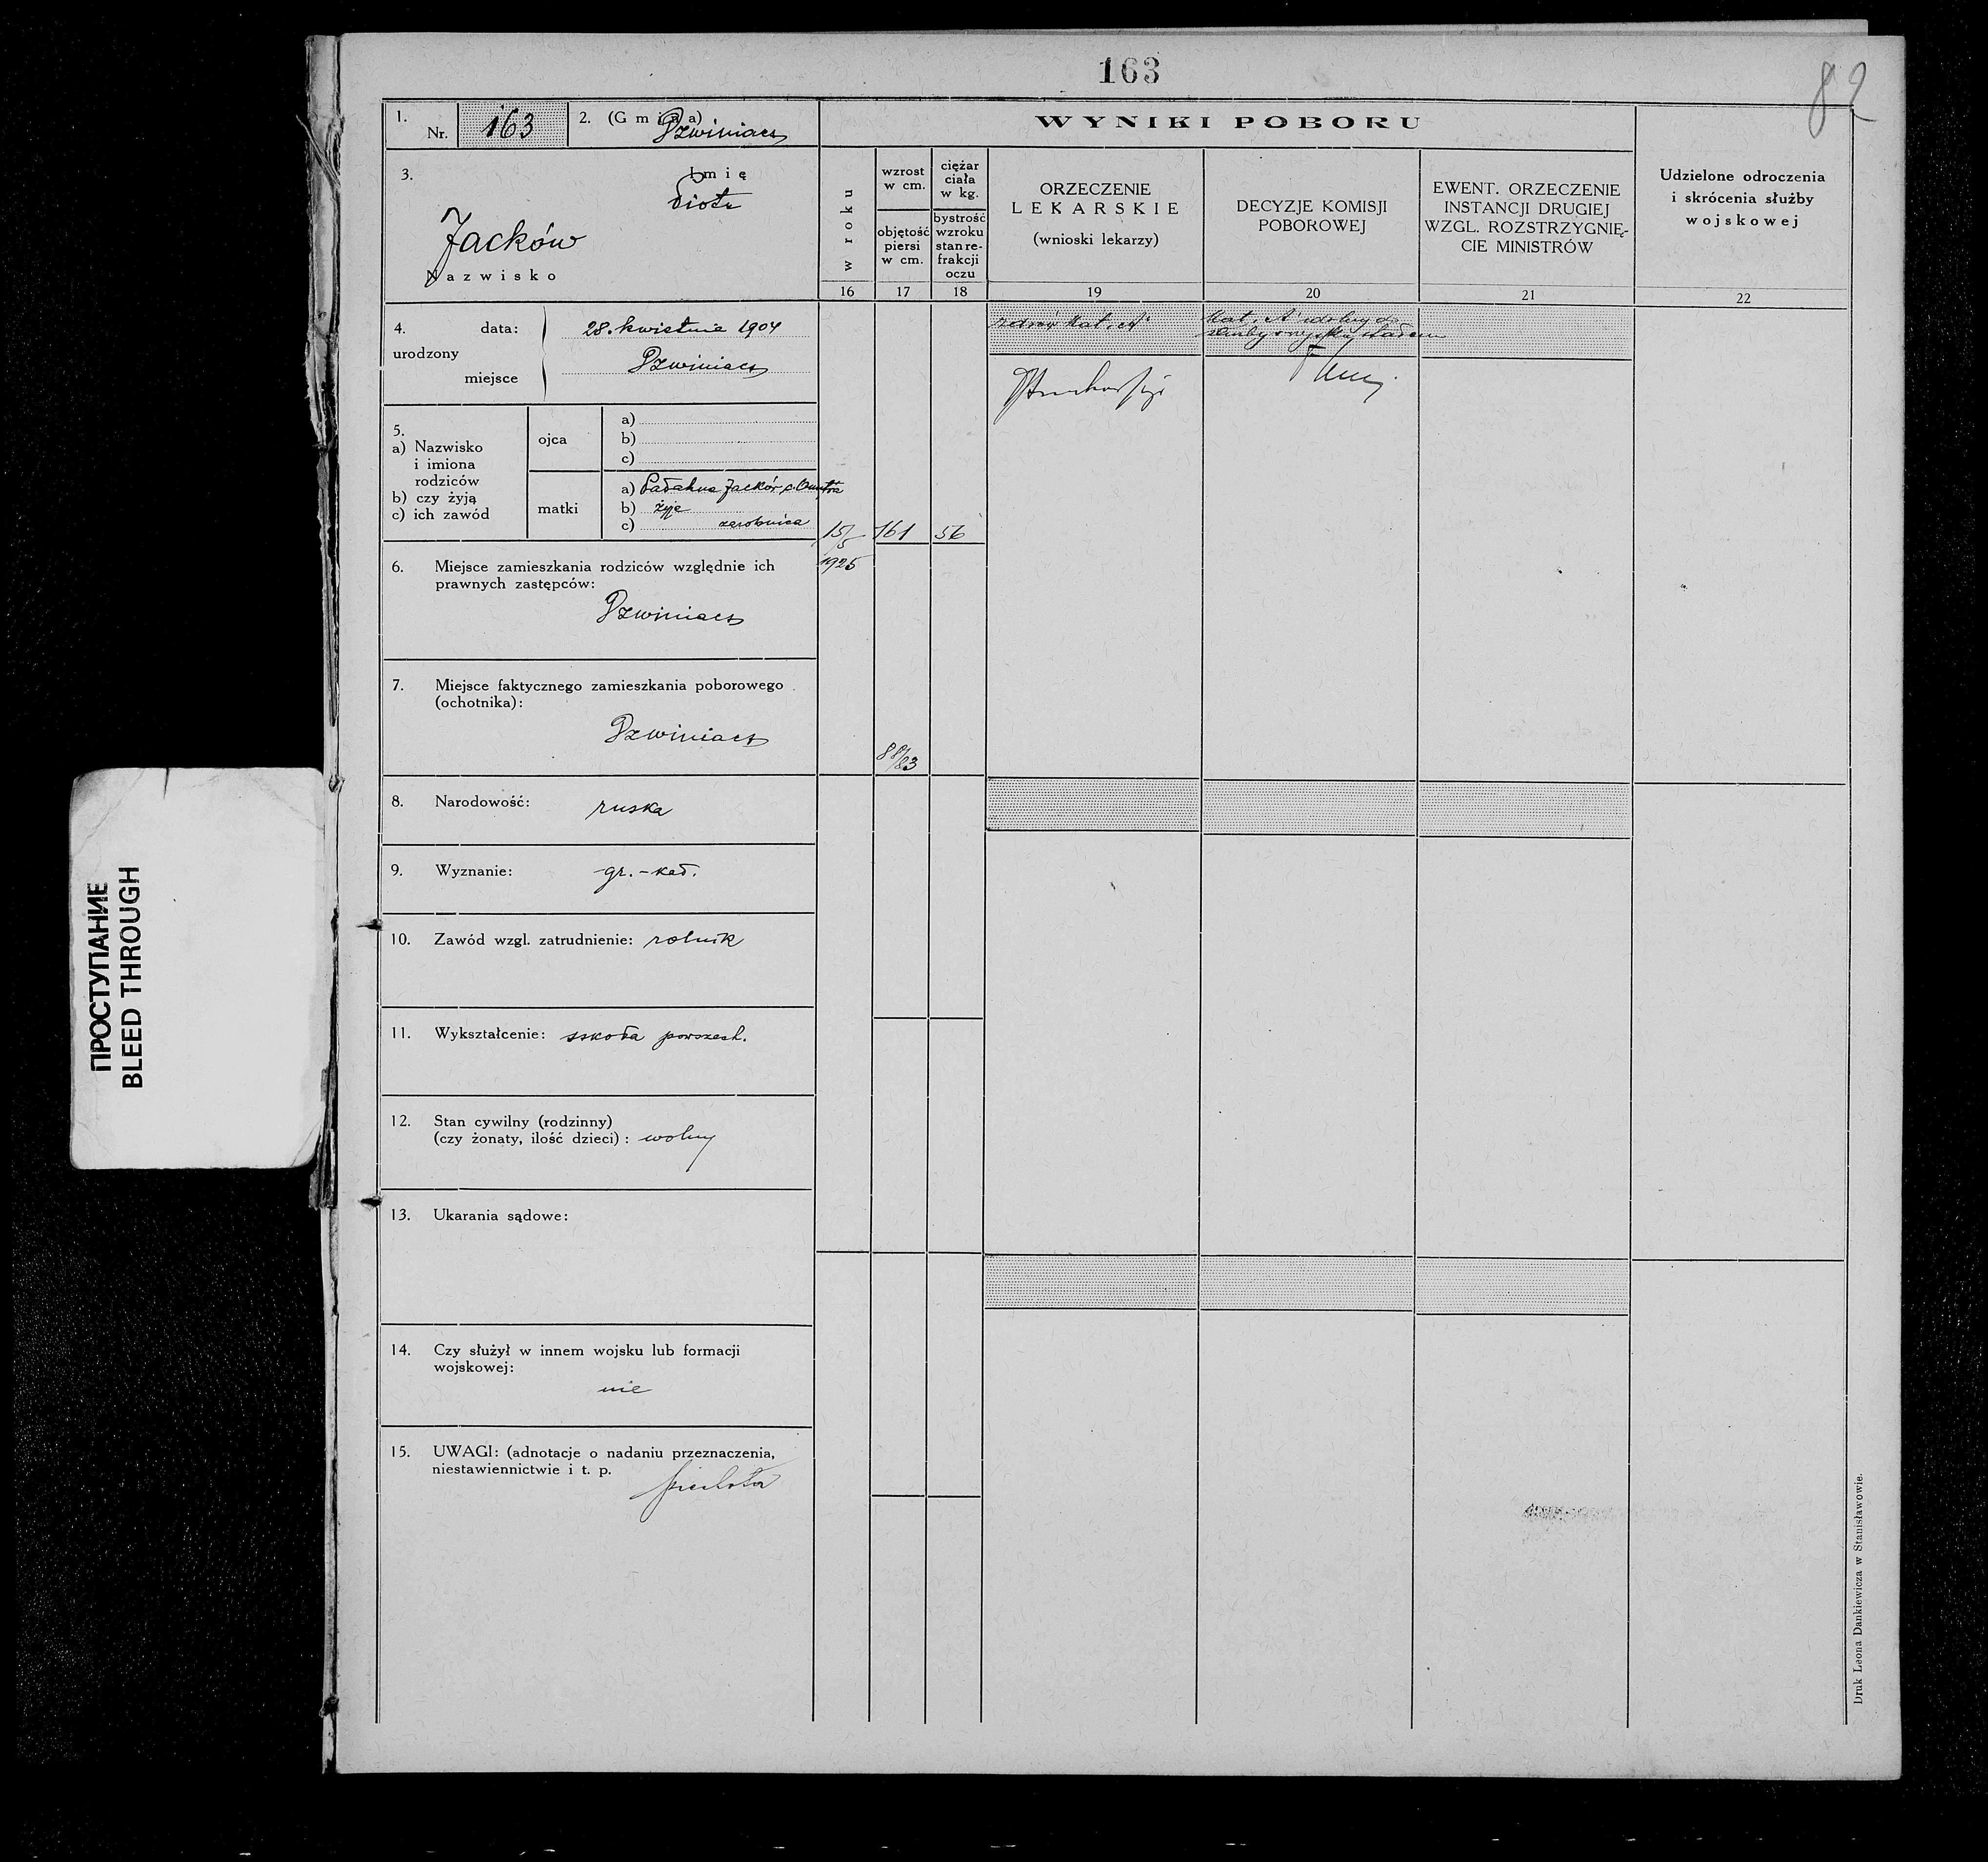 163
82
1.
Nr. 163
2. (Gmina) Dzwiniacz
3.
Imię
Piotr
Jacków
Nazwisko
4. data: 28. kwietnia 1904
urodzony
miejsce Dzwiniacz
5.
a) Nazwisko
i imiona
rodziców
b) czy żyją
c) ich zawód
ojca
a)
b)
c)
matki
a) Jacków c. Dmytra
b) żyje
c) zarobnica
6. Miejsce zamieszkania rodziców względnie ich
prawnych zastępców:
Dzwiniacz
7. Miejsce faktycznego zamieszkania poborowego
(ochotnika):
Dzwiniacz
8. Narodowość: ruska
9. Wyznanie: gr.-kat.
10. Zawód wzgl. zatrudnienie: rolnik
11. Wykształcenie: szkoła powszech.
12. Stan cywilny (rodzinny)
(czy żonaty, ilość dzieci): wolny
13. Ukarania sądowe:
14. Czy służył w innem wojsku lub formacji
wojskowej:
nie
15. UWAGI: (adnotacje o nadaniu przeznaczenia,
niestawiennictwie i t. p.
piechota
WYNIKI POBORU
w roku
16
wzrost
w cm.
objętość
piersi
w cm.
17
ciężar
ciała
w kg.
bystrość
wzroku
stan re-
frakcji
oczu
18
ORZECZENIE
LEKARSKIE
(wnioski lekarzy)
19
DECYZJE KOMISJI
POBOROWEJ
20
EWENT. ORZECZENIE
INSTANCJI DRUGIEJ
WZGL. ROZSTRZYGNIĘ-
CIE MINISTRÓW
21
Udzielone odroczenia
i skrócenia służby
wojskowej
22
15/5
1925
161
56
88/83
zdrów Kat. „A"
Kat. A zdolny do
służby wojsk.
Druk Leona Dankiewicza w Stanisławowie.
ПРОСТУПАНИЕ
BLEED THROUGH